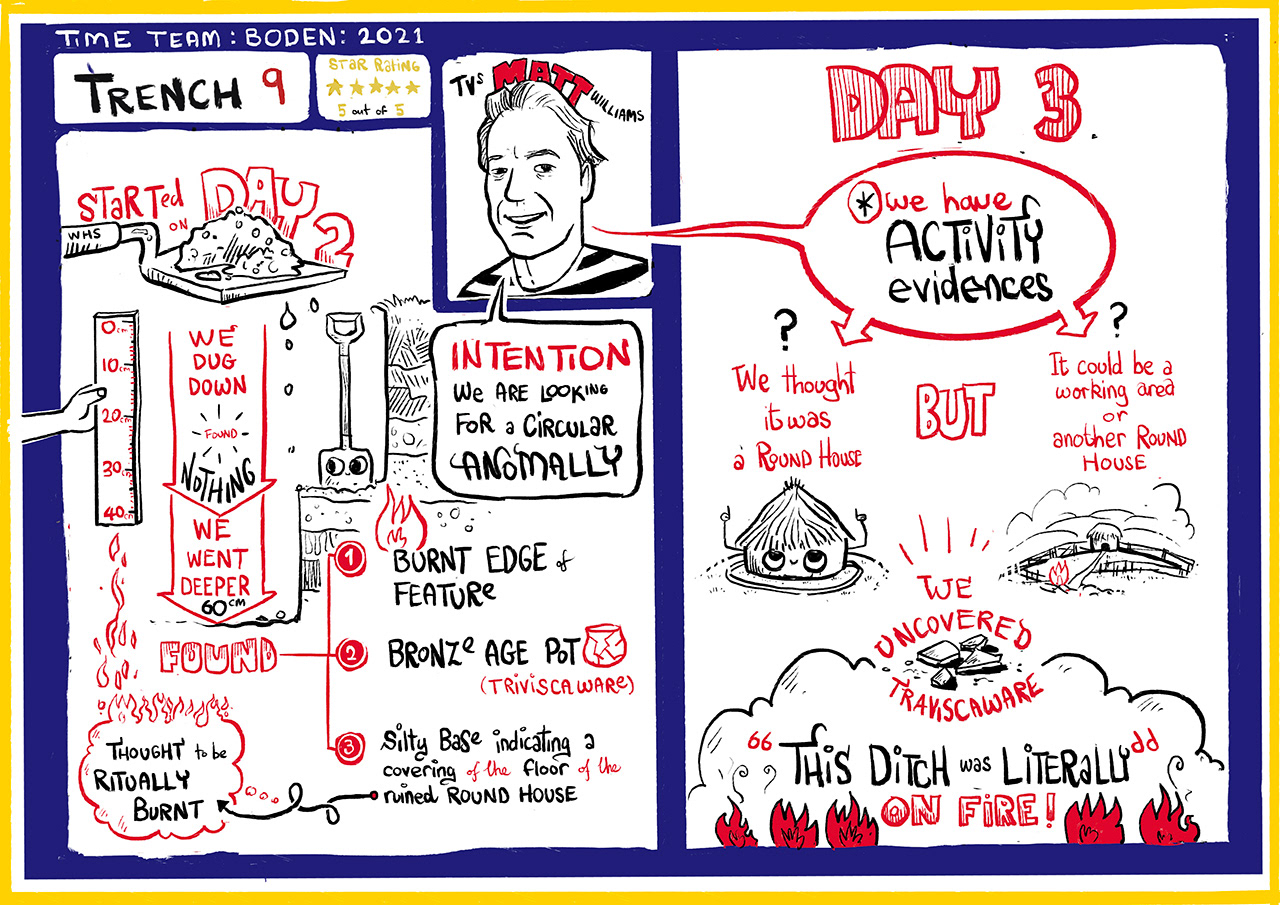 TIME TEAM: BODEN: 2021
TRENCH 9
STAR RATING
5 out of 5
TVs MATT WILLIAMS
STARTED ON DAY 2
WHS
0cm
10cm
20cm
30cm
40cm
WE
DUG
DOWN
FOUND
NOTHING
WE
WENT
DEEPER
60cm
INTENTION
WE ARE LOOKING
FOR a CIRCULAR
ANOMALLY
FOUND
1 BURNT EDGE of
FEATURE
2 BRONZE AGE POT
(TRIVISCAWARE)
3 Silty Base indicating a
covering of the floor of the
ruined ROUND HOUSE
THOUGHT to be
RITUALLY
BURNT
DAY 3.
* we have
ACTIVITY
evidences
?
We thought
it was
a ROUND HOUSE
BUT
?
It could be a
working area
or
another ROUND
HOUSE
WE
UNCOVERED
TRAVISCAWARE
"THIS DITCH was LITERALLY"
ON FIRE!